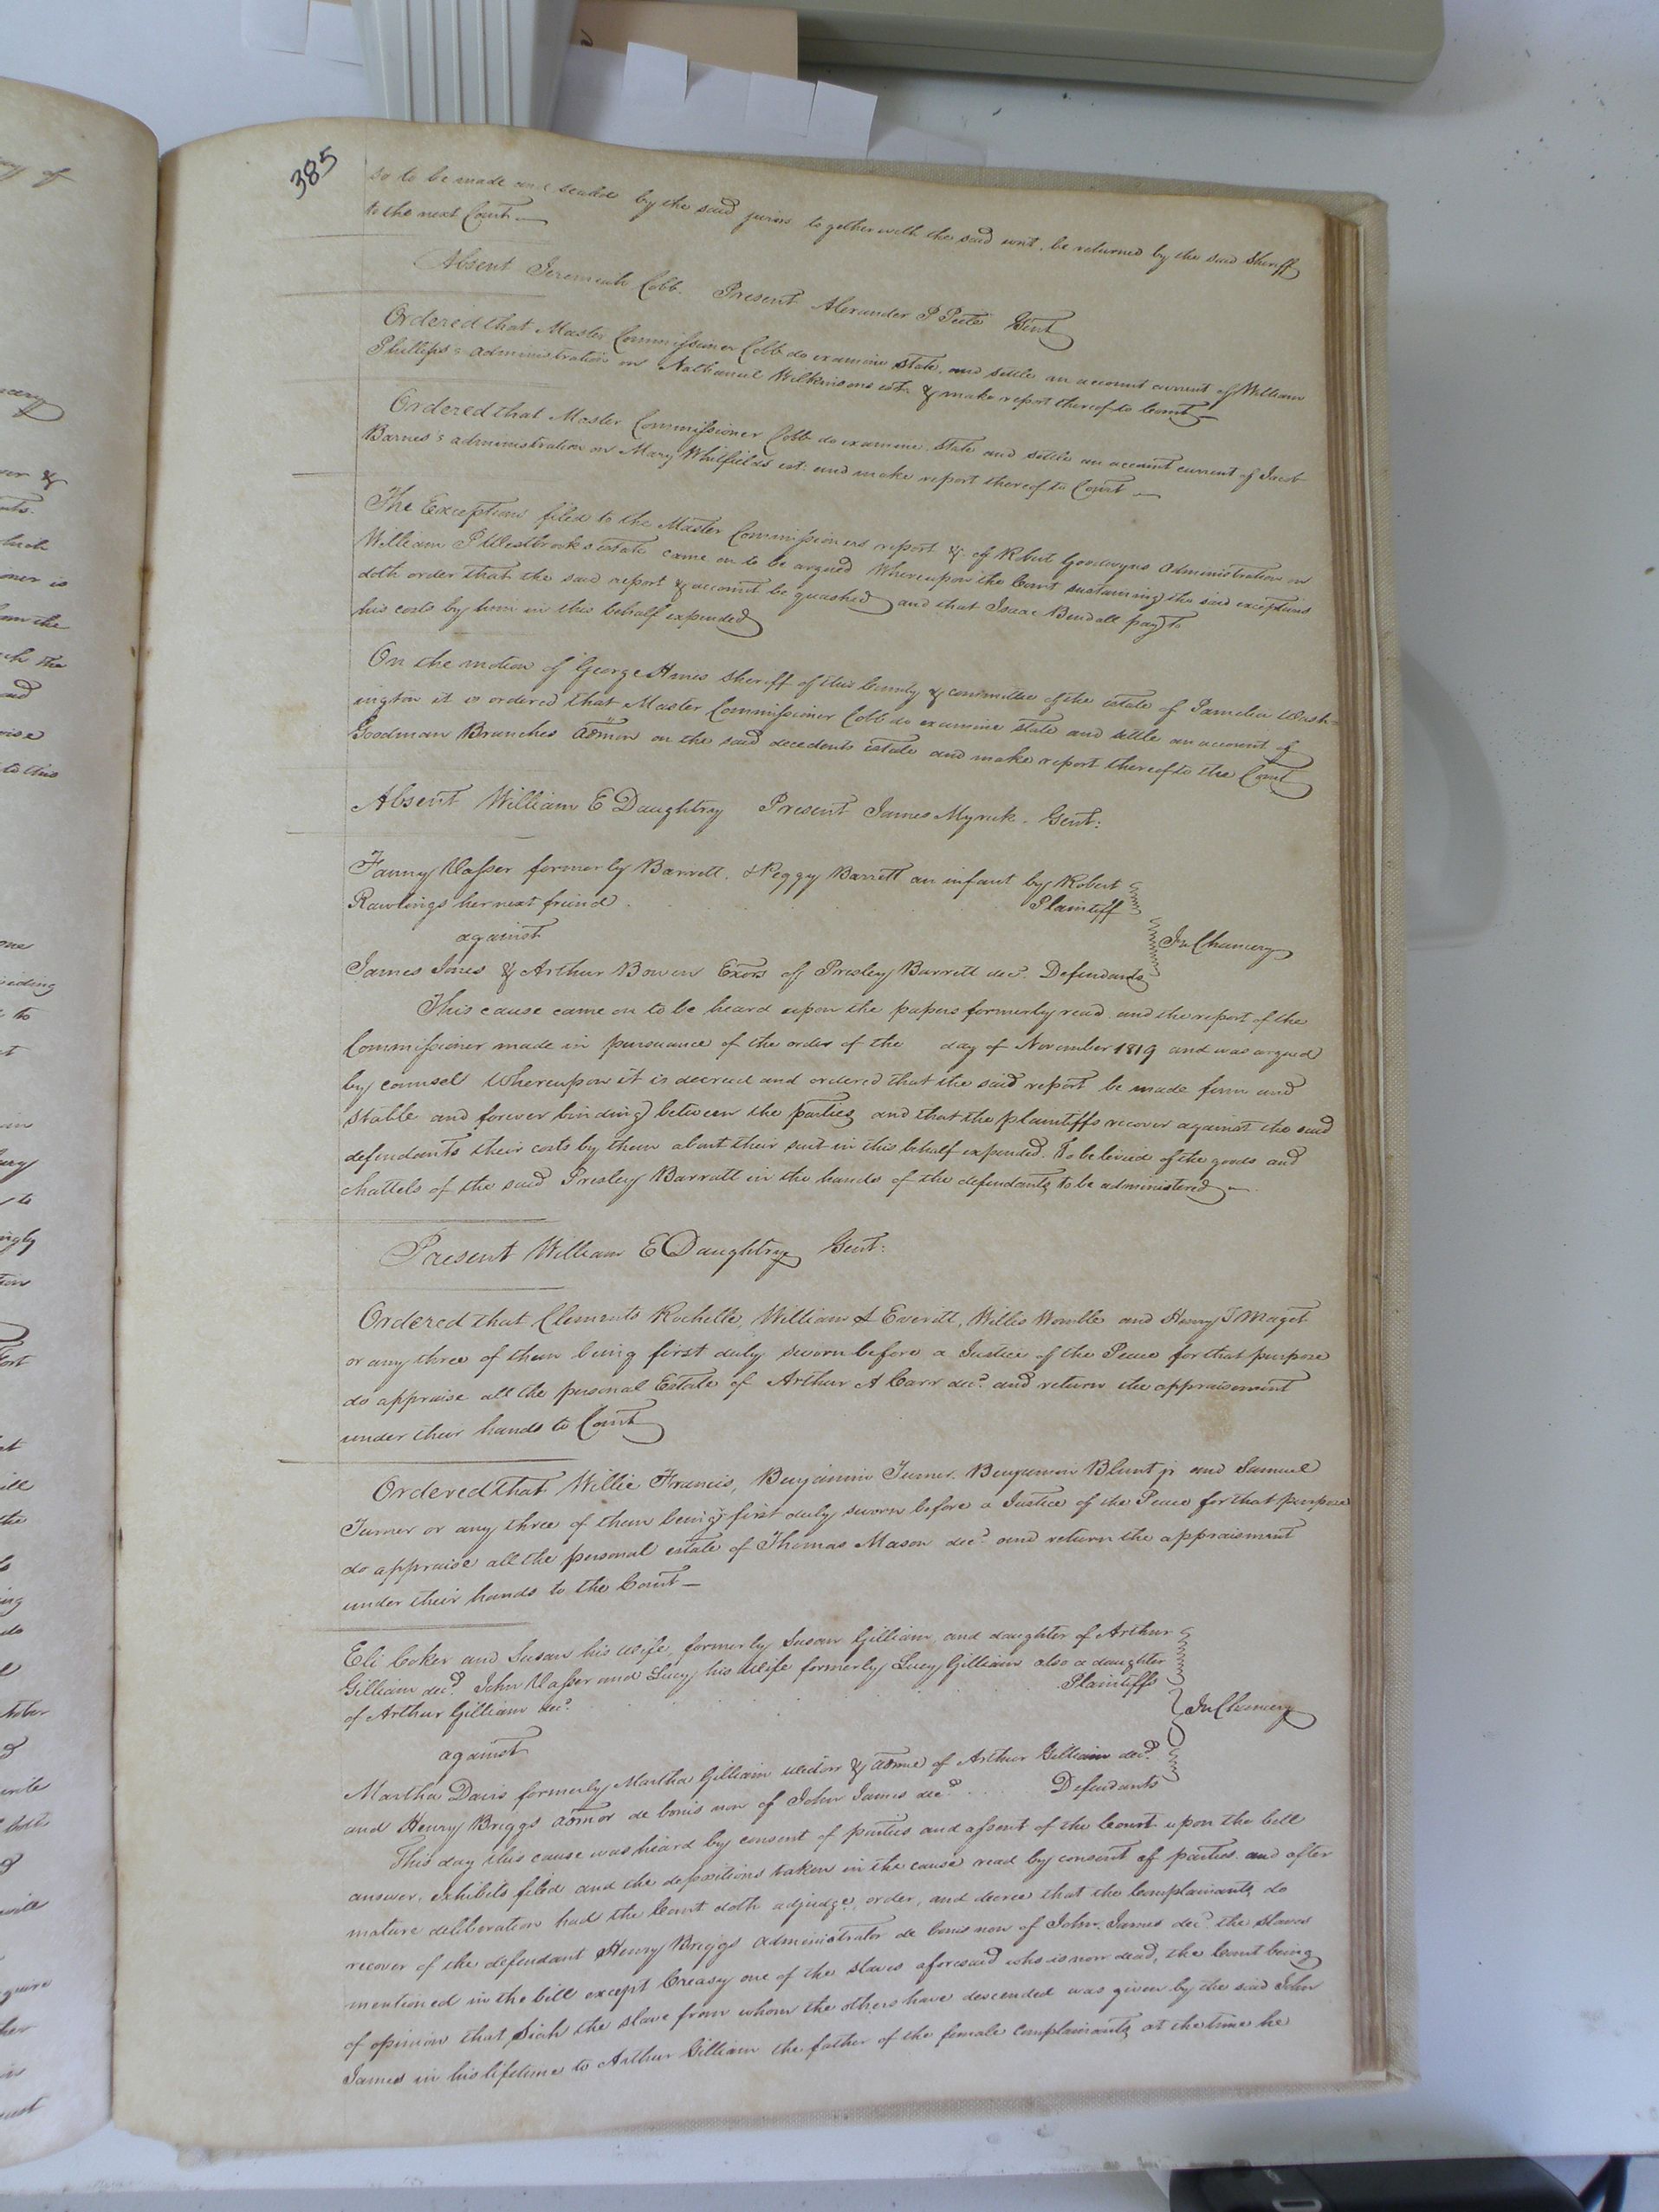 385
so to be made and sealed by the said jurors together with the said writ, be returned by the said Sheriff
to the next Court —
Absent Jeremiah Cobb. Present Alexander P Peete Gent
Ordered that Master Commissioner Cobb do examine state, and settle an account current of William
Phillips's administration on Nathaniel Wilkinsons est. & make report thereof to Court —
Ordered that Master Commissioner Cobb do examine, state and settle an account current of Jacob
Barnes's administration on Mary Whitfields est: and make report thereof to Court —
The Exceptions filed to the Master Commissioners report &c of Robert Goodwyns administration on
William P Westbrooks estate came on to be argued Whereupon the Court sustaining the said exceptions
doth order that the said report & account be quashed and that Isaac Bendall pay to
his costs by him in this behalf expended
On the motion of George Ames Sheriff of this County & committee of the estate of Pamelia Wash=
ington it is ordered that Master Commissioner Cobb do examine state and settle an account of
Goodman Branches admon on the said decedents estate and make report thereof to the Court
Absent William E Daughtry Present James Myrick. Gent:
Fanny Vasser formerly Barrett. & Peggy Barrett an infant by Robert
Rawlings her next friend . Plaintiff
against
In Chancery
James Jones & Arthur Bowen Exors of Presley Barrett decd. Defendants
This cause came on to be heard upon the papers formerly read and the report of the
Commissioner made in pursuance of the order of the day of November 1819 and was argued
by counsel Whereupon it is decreed and ordered that the said report be made firm and
stable and forever binding between the parties and that the plaintiffs recover against the said
defendants their costs by them about their suit in this behalf expended. To be levied of the goods and
chattels of the said Presley Barratt in the hands of the defendants to be administered —
Present William E Daughtry Gent:
Ordered that Clements Rochelle, William A Everitt, Willis Womble and Henry T Maget
or any three of them being first duly sworn before a Justice of the Peace for that purpose
do appraise all the personal Estate of Arthur A Carr decd. and return the appraisement
under their hands to Court
Ordered that Willie Francis, Benjamin Turner. Benjamin Blunt jr and Samuel
Turner or any three of them being first duly sworn before a Justice of the Peace for that purpose
do appraise all the personal estate of Thomas Mason decd and return the appraisment
under their hands to the Court —
Eli Coker and Susan his wife, formerly Susan Gilliam and daughter of Arthur
Gilliam decd. John Vasser and Lucy his Wife formerly Lucy Gilliam also a daughter
of Arthur Gilliam decd. Plaintiffs
In Chancery
against
Martha Davis formerly Martha Gilliam widow & admx of Arthur Gilliam decd.
and Henry Briggs admor de bonis non of John James decd .... Defendants
This day this cause was heard by consent of parties and assent of the Court upon the bill
answer, exhibits filed and the depositions taken in the cause read by consent of parties. and after
mature deliberation had the Court doth adjudge, order, and decree that the complainants do
recover of the defendant Henry Briggs administrator de bonis non of John James decd. the slaves
mentioned in the bill except Creasy one of the slaves aforesaid who is now dead, the Court being
of opinion that Siah the slave from whom the others have descended was given by the said John
James in his lifetime to Arthur Gilliam the father of the female complainants at the time he